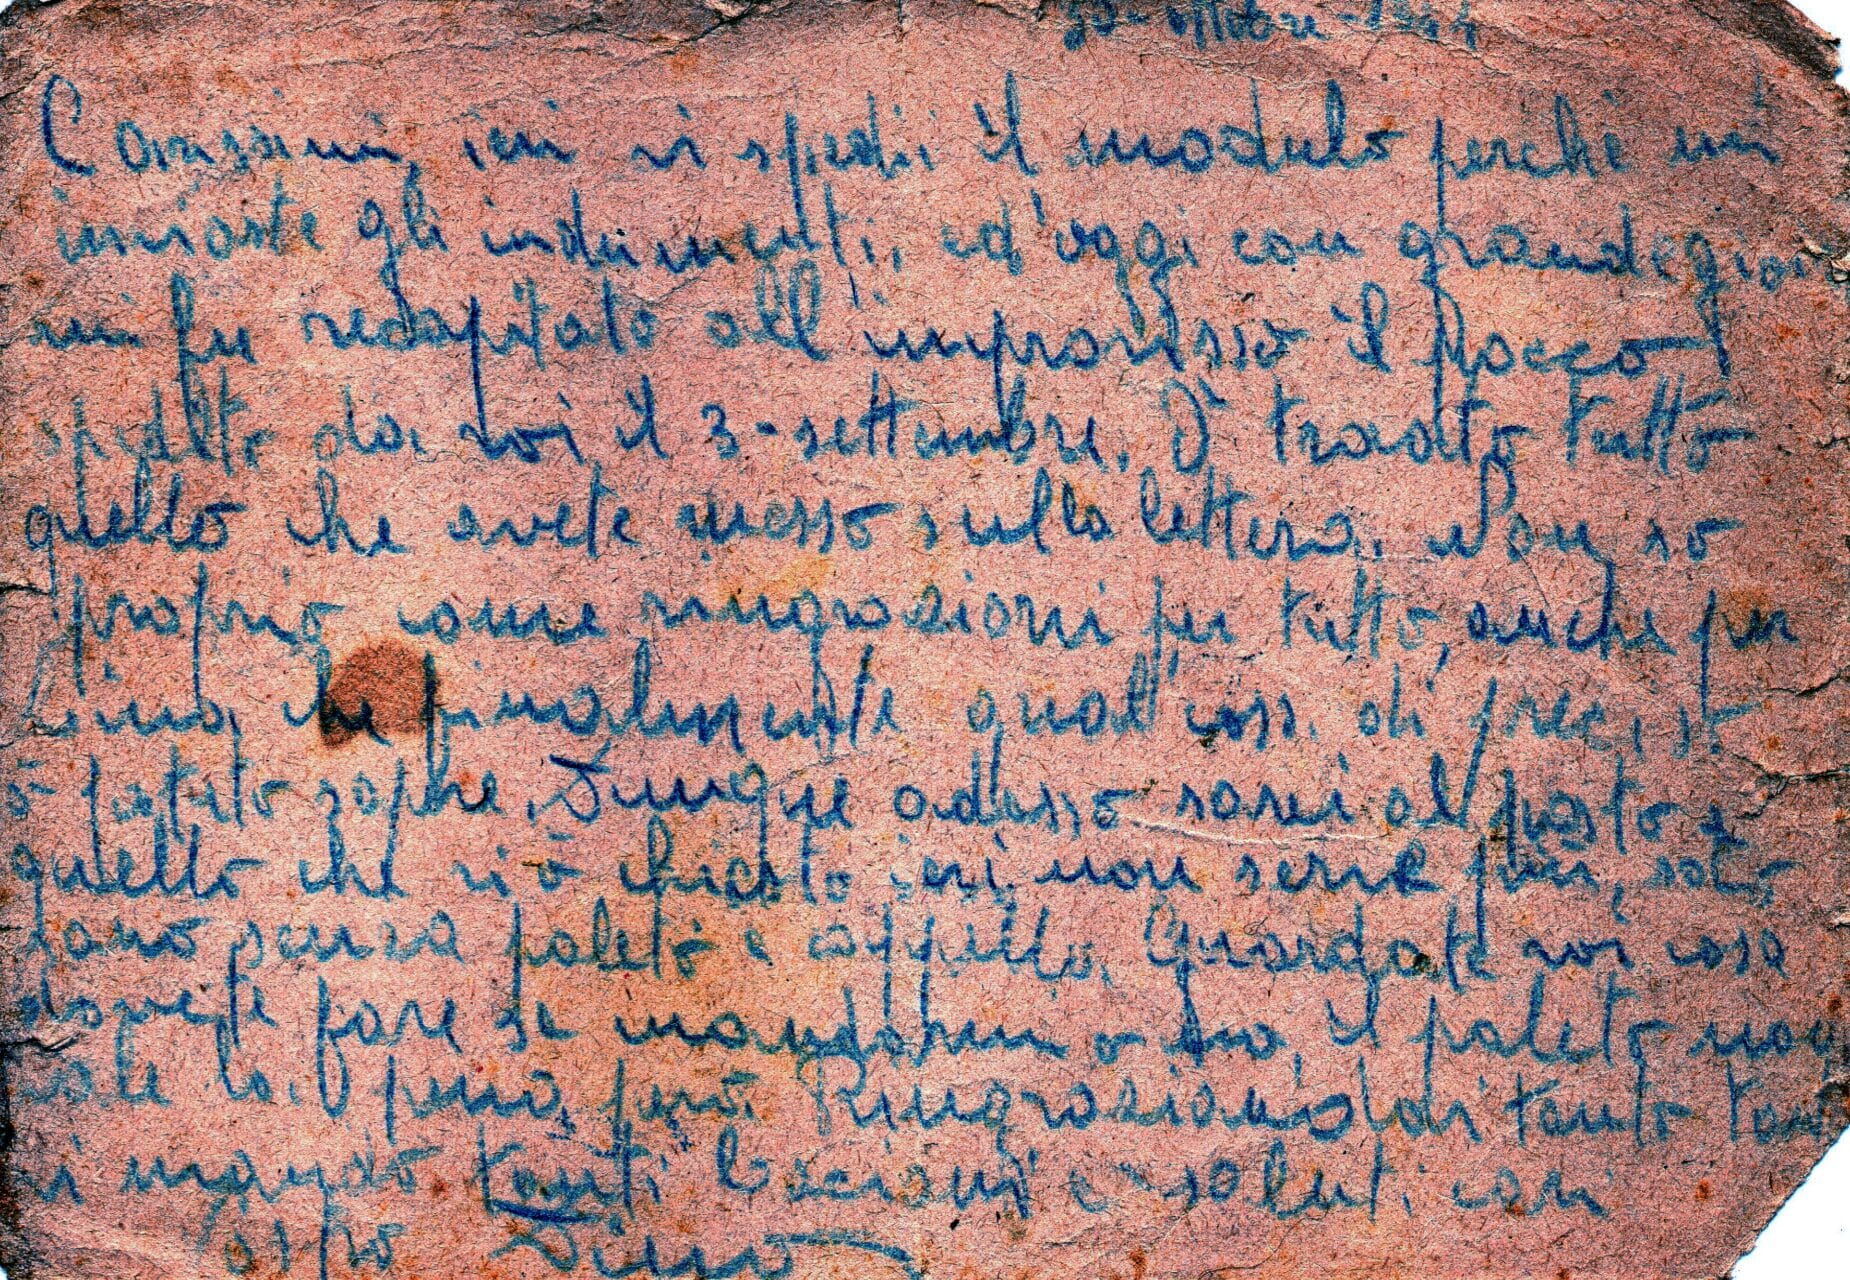 30-ottobre-1944
Carissimi, ieri vi spedii il modulo perchè mi
inviaste gli indumenti, ed'oggi con grande gioi
mi fu recapitato all'improvisso il pacco
spedito da voi il 3-settembre. Ò trovato tutto
quello che avete messo sulla lettera. Non so
proprio come ringraziarvi per tutto, anche per
che finalmente qualcosa di
ò potuto sapere. Dunque adesso sarei al posto e
quello che vi ò chiesto ieri non serve più, solo
senza paletò e cappello. Guardate voi cosa
dovete fare se mandarmi o no, il paletò non
vale la pena però. Ringraziandovi tanto tant
vi mando tanti bacioni e saluti cari
Dino